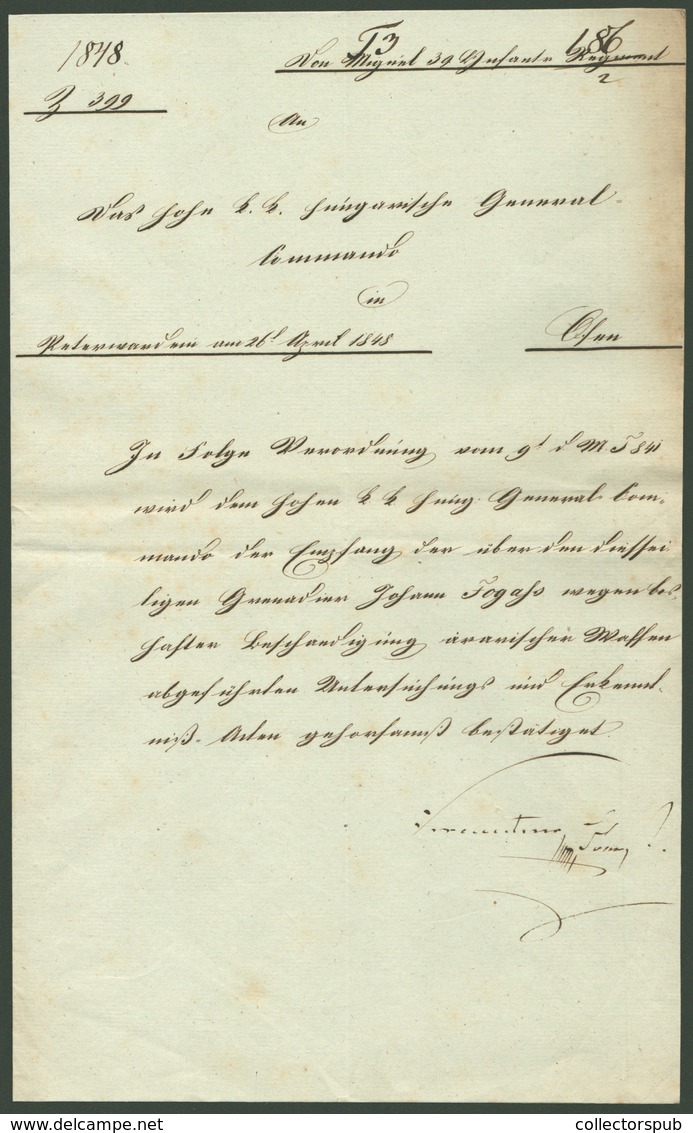 1848. T3 186/2
Don Miguel 39 Infantr Regiment
Z 399
An
Das hohe k. k. hungarische General-
Commando
in
Peterwardein am 26t April 1848 Ofen
In Folge Verordnung vom 9t d M. T 841
wird dem hohen k k hung. General-Com-
mando der Empfang der über den diessei-
tigen Grenadier Johann Togass wegen bos-
hafter Beschaedigung ärarischer Waffen
abgeführten Untersuchungs und Erkennt-
niß-Acten gehorsamst bestätiget
www.delcampe.net
collectorspub